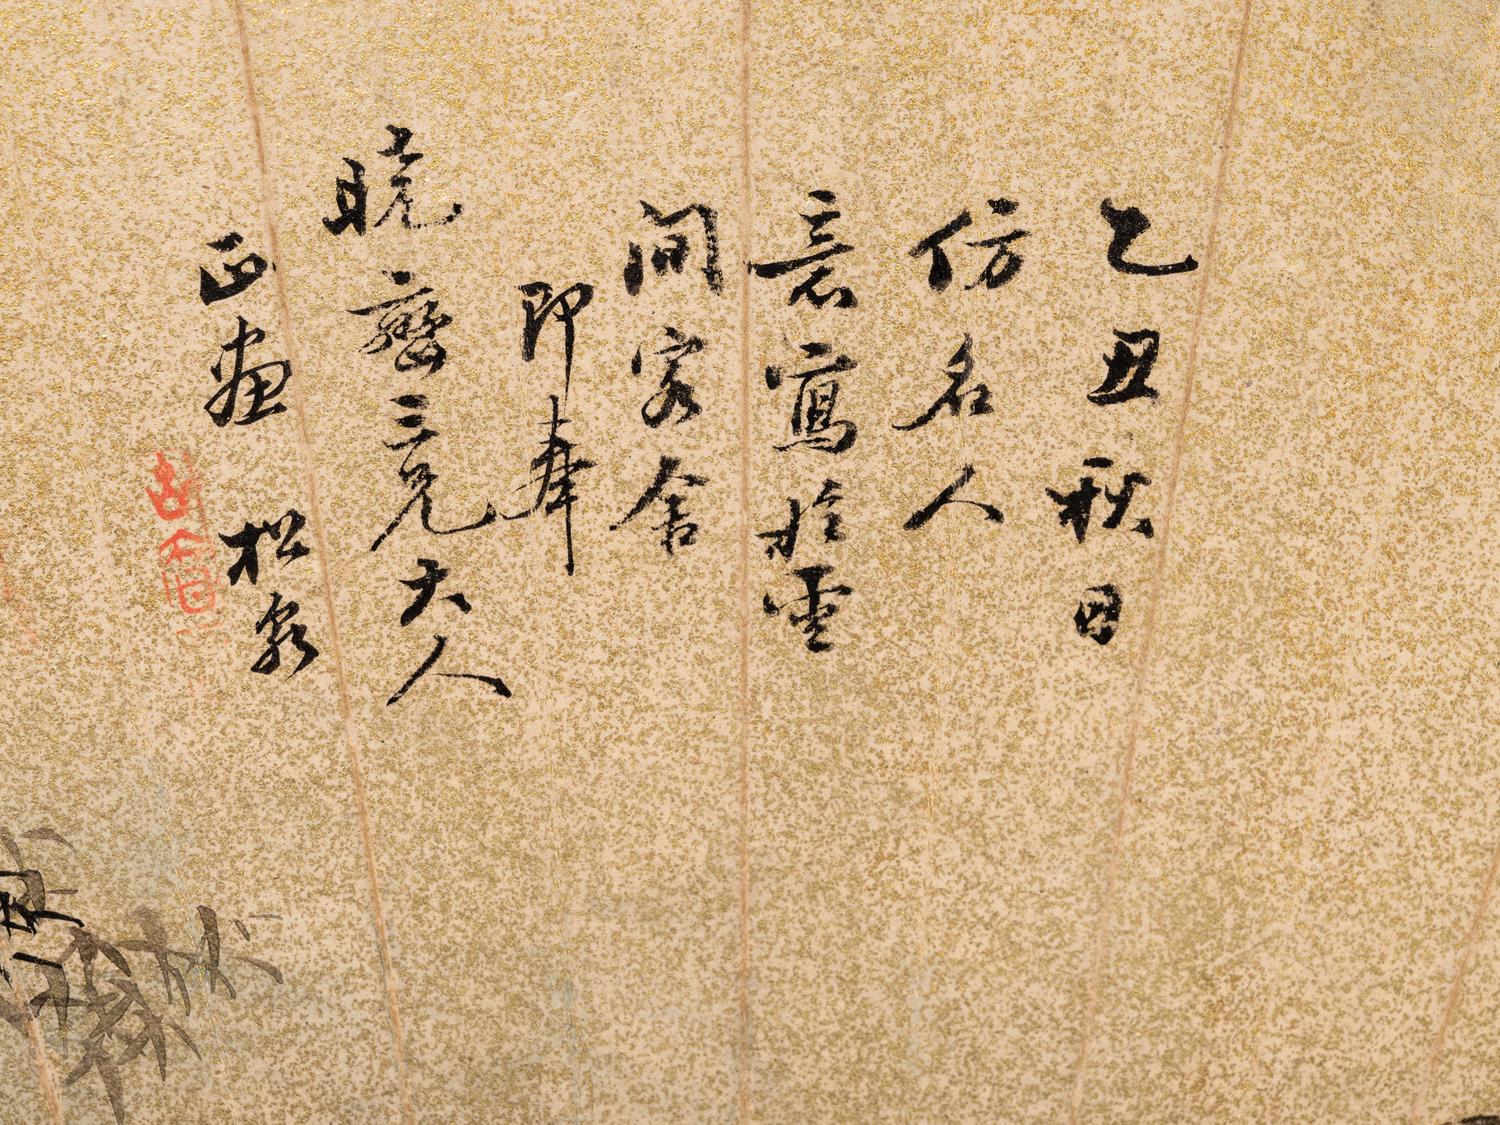 乙丑秋日
仿名人
意寫於雲
間客舍
即奉
曉巒三兄大人
正畫 松泉